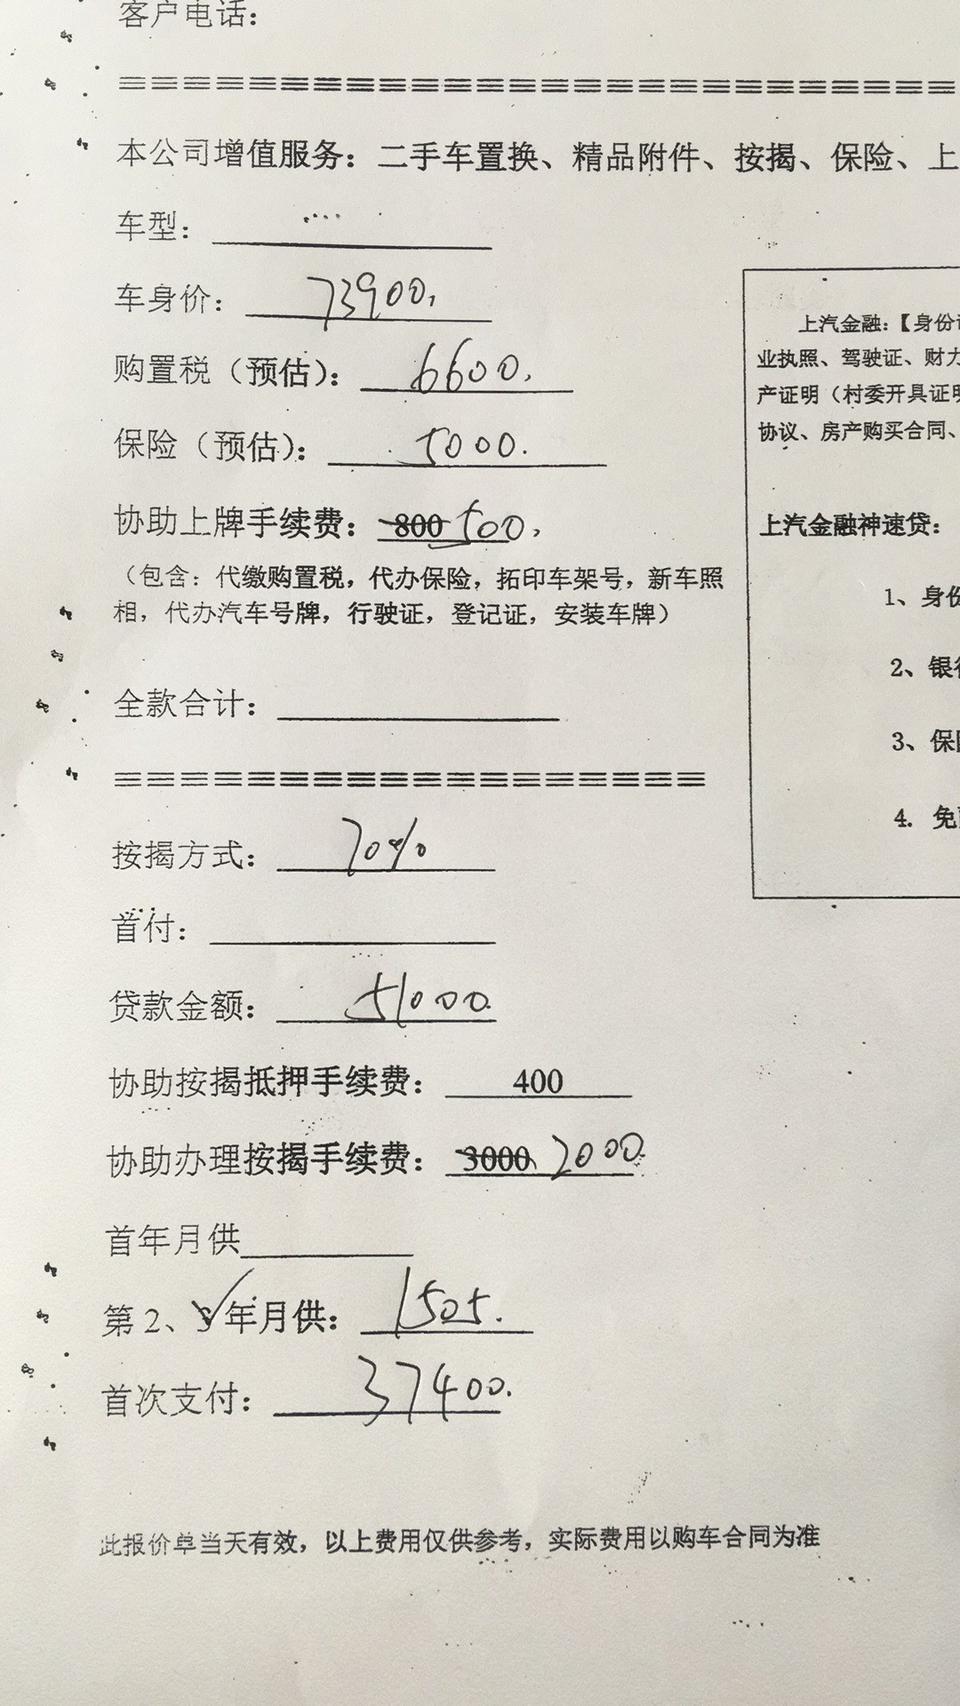 客户电话：
本公司增值服务：二手车置换、精品附件、按揭、保险、上
车型：
车身价：73900.
购置税（预估）：6600.
保险（预估）：5000.
协助上牌手续费：800 500.
（包含：代缴购置税，代办保险，拓印车架号，新车照
相，代办汽车号牌，行驶证，登记证，安装车牌）
全款合计：
按揭方式：70%
首付：
贷款金额：51000.
协助按揭抵押手续费：400
协助办理按揭手续费：3000 2000.
首年月供
第2、3年月供：1505.
首次支付：37400.
此报价单当天有效，以上费用仅供参考，实际费用以购车合同为准
上汽金融：【身份
业执照、驾驶证、财力
产证明（村委开具证明
协议、房产购买合同、
上汽金融神速贷：
1、身份
2、银
3、保
4. 免